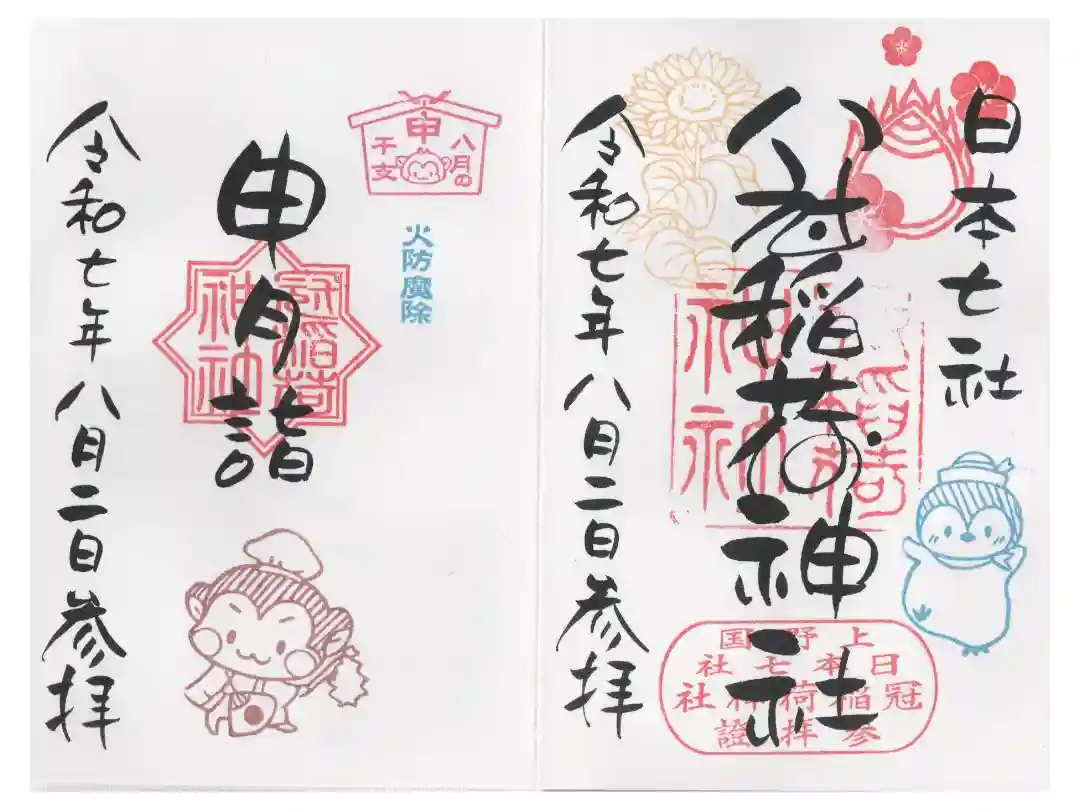 日本七社
冠稲荷神社
上野国
日本七社
冠稲荷神社
参拝證
令和七年八月二日参拝
八月の
申
干支
火防魔除
申月詣
冠稲荷
神社
令和七年八月二日参拝